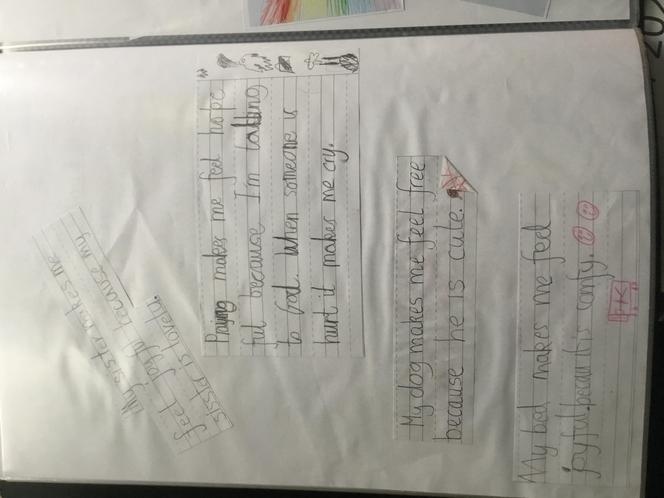 My sister makes me
feel joyful because my
sister is lovely.
Praying makes me feel hope
ful because I'm talking
to God. When someone is
hurt it makes me cry.
My dog makes me feel free
because he is cute.
My bed makes me feel
joyful becau his comfy.